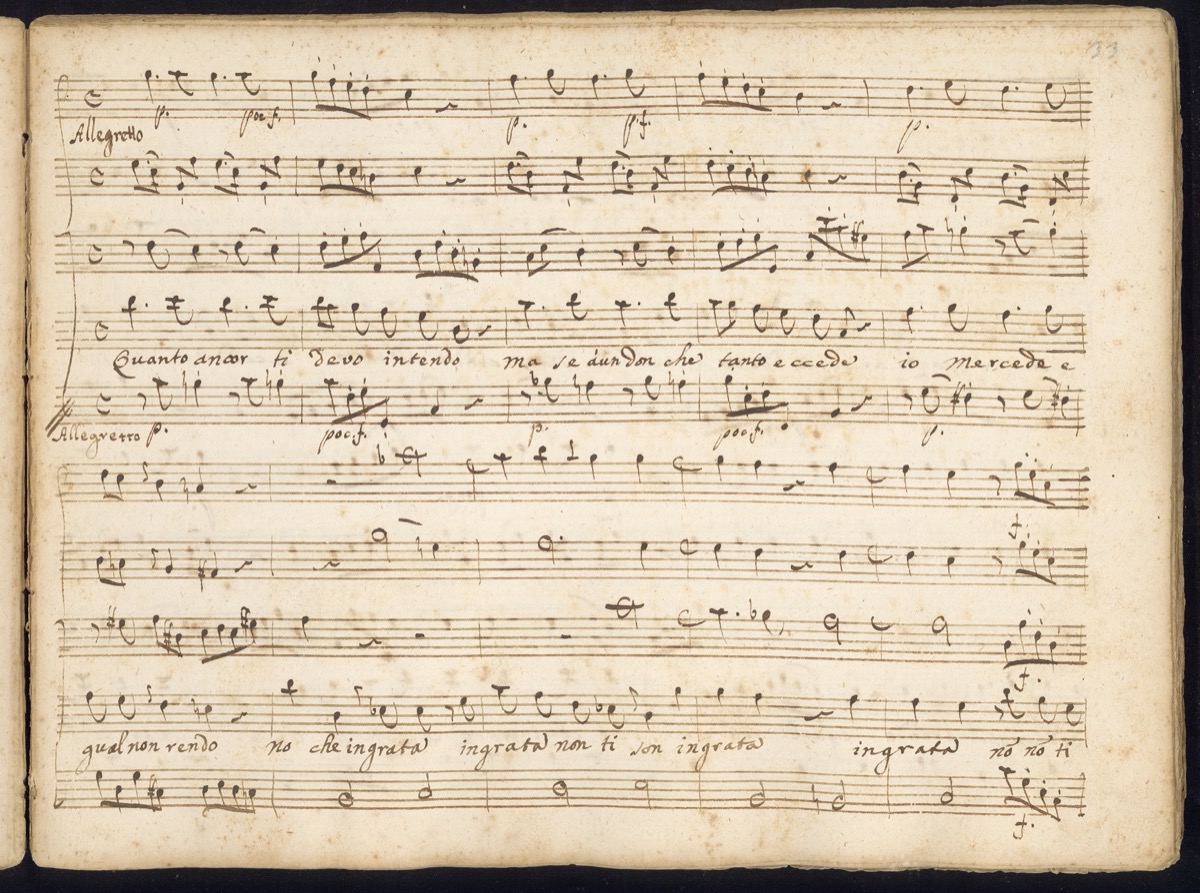 33
p. poc f. p. p.f. p.
Allegretto
Quanto ancor ti devo intendo ma se áun don che tanto eccede io mercede e
Allegretto p. poc.f. p. poc.f. p.
f.
f.
gual non rendo no che ingrata ingrata non ti son ingrata ingrata nō nō ti
f.